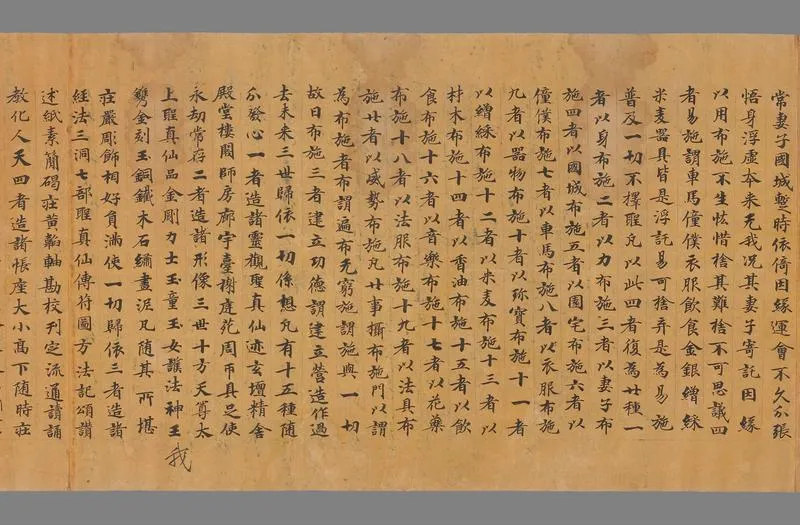 常妻子國城暫時依倚因緣運會不久分張
悟身浮虛本来无我况其妻子寄託因緣
以用布施不生怯惜捨其難捨不可思議四
者易施謂車馬僮僕衣服飲食金銀繒綵
米麦器具皆是浮託易可捨弃是為易施
普及一切不擇聖凡以此四者復為廿種一
者以身布施二者以力布施三者以妻子布
施四者以國城布施五者以園宅布施六者以
僮僕布施七者以車馬布施八者以衣服布施
九者以器物布施十者以珎寶布施十一者
以繒綵布施十二者以米麦布施十三者以
材木布施十四者以香油布施十五者以飲
食布施十六者以音樂布施十七者以花藥
布施十八者以法服布施十九者以法具布
施廿者以威勢布施凡廿事攝布施門以謂
為布施者布謂遍布无窮施謂施與一切
故曰布施三者建立功德謂建立營造作過
去未来三世歸依一切係想凡有十五種随
分發心一者造諸靈觀聖真仙迹玄壇精舍
殿堂樓閣師房廊宇臺榭庭苑周帀具足使
永劫常存二者造諸形像三世十方天尊太
上聖真仙品金剛力士玉童玉女護法神王
我
雙金刻玉銅鐵木石繡畫泥凡随其所堪
莊嚴彫飾相好負滿使一切歸依三者造諸
經法三洞七部聖真仙傳符圖方法記頌讚
述紙素簡碣莊黃韜軸勘校刊定流通請誦
教化人天四者造諸帳座大小高下随時莊